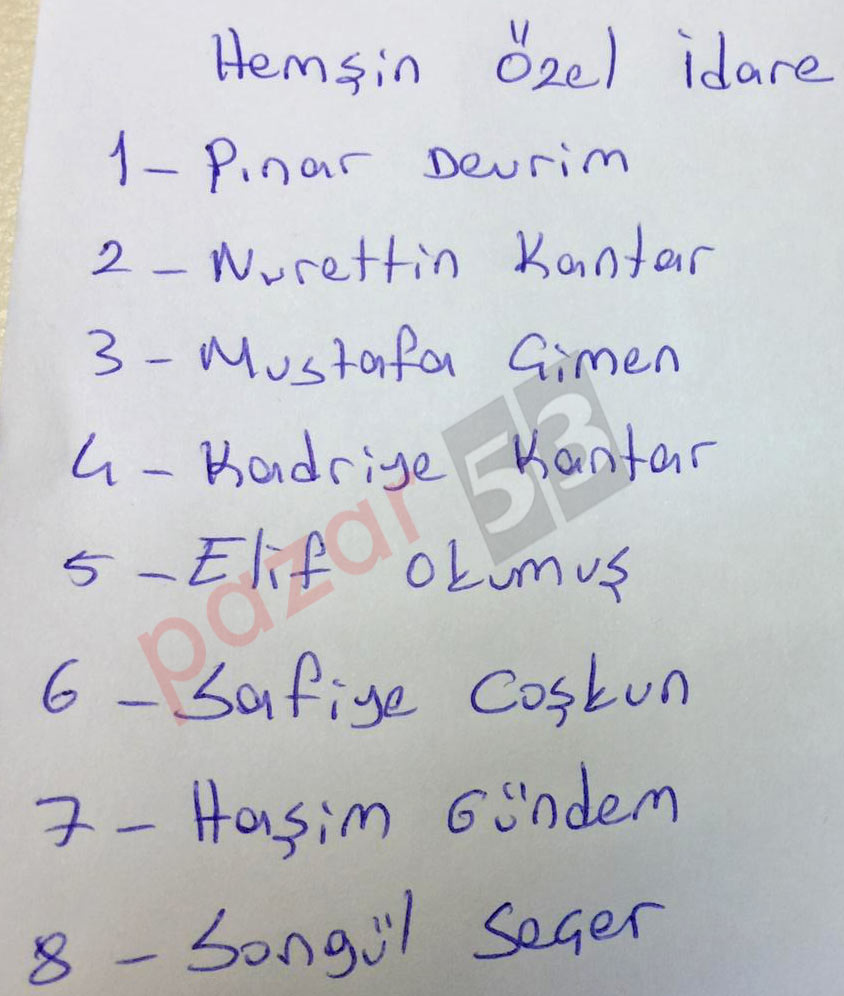 Hemşin Özel İdare
1 - Pınar Devrim
2 - Nurettin Kantar
3 - Mustafa Çimen
4 - Kadriye Kantar
5 - Elif Okumuş
6 - Safiye Coşkun
7 - Haşim Gündem
8 - Songül Seçer
pazar 53